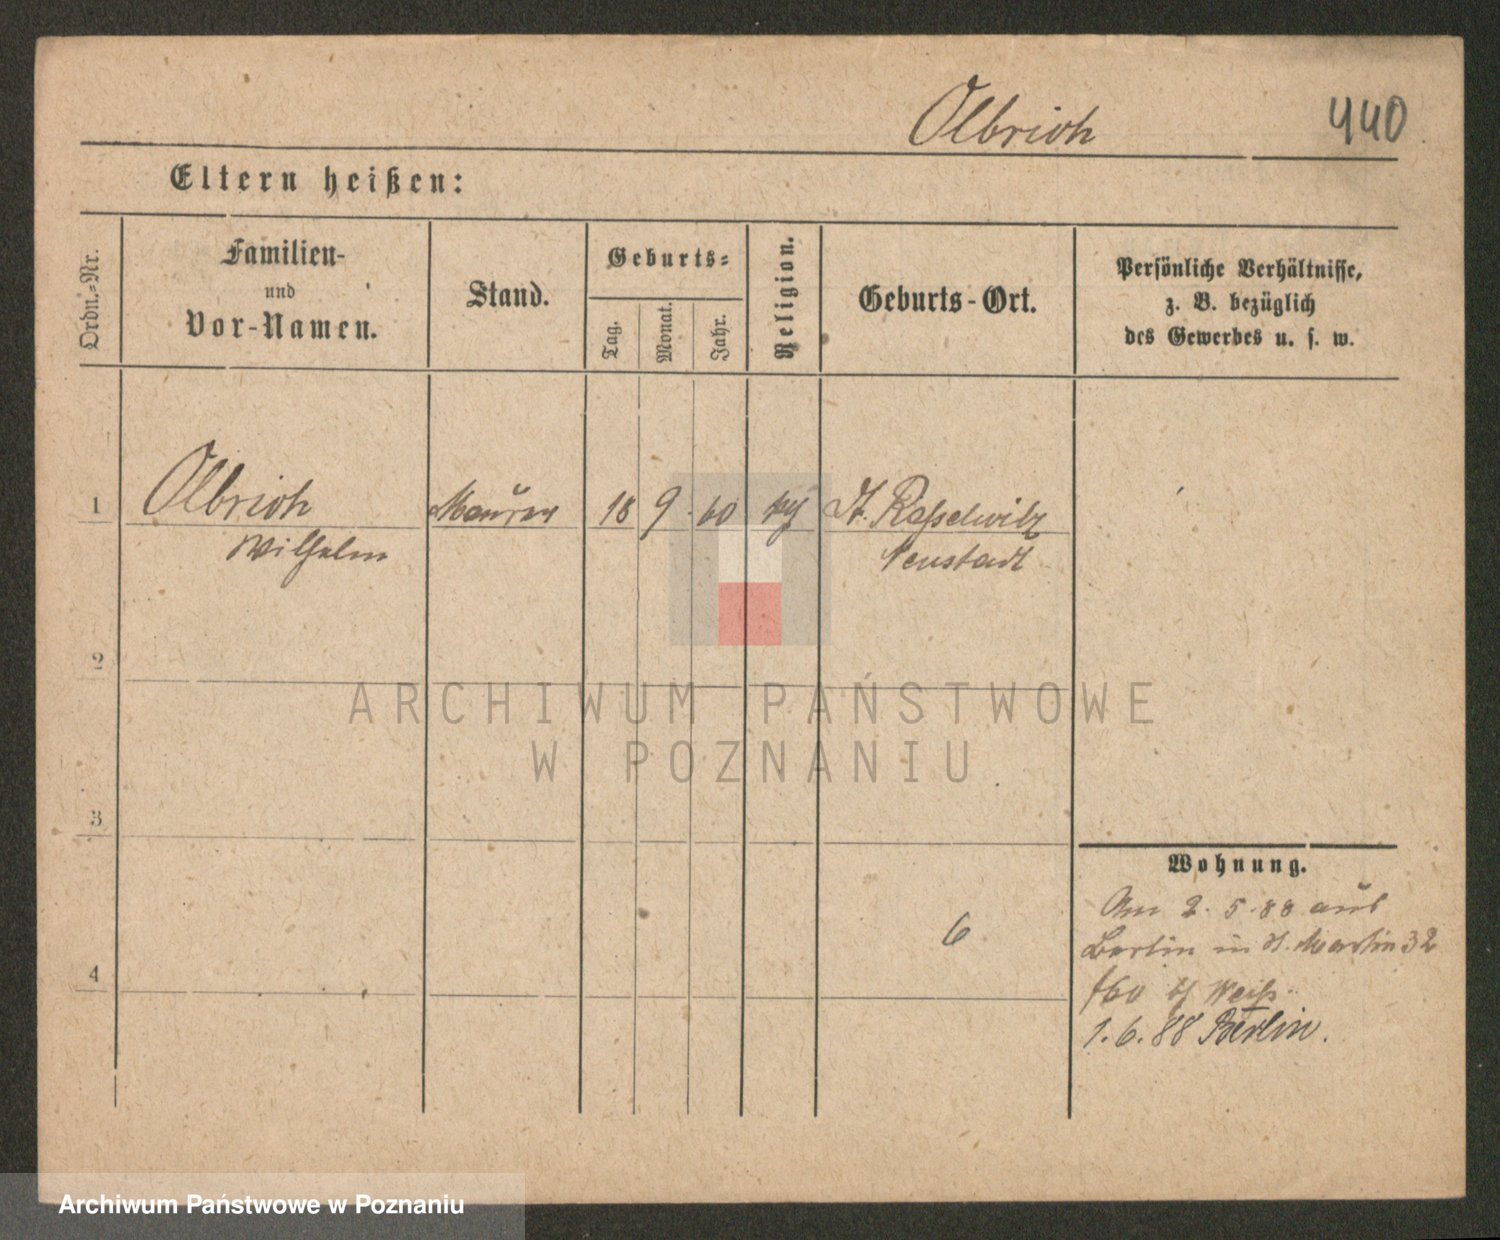 Olbrich 440
Eltern heißen:
Ordn.-Nr.
Familien-
und
Vor-Namen.
Stand.
Geburts-
Tag.
Monat.
Jahr.
Religion.
Geburts-Ort.
Persönliche Verhältnisse,
z. B. bezüglich
des Gewerbes u. s. w.
1 Olbrich Maurer 18 9. 60 Dt. Rasselwitz
Wilhelm Neustadt
2
ARCHIWUM PAŃSTWOWE
W POZNANIU
3
Wohnung.
Am 2. 5. 88 aus
6
Berlin in St. Martin 32
4
b/ Weiß
1. 6. 88 Berlin.
Archiwum Państwowe w Poznaniu